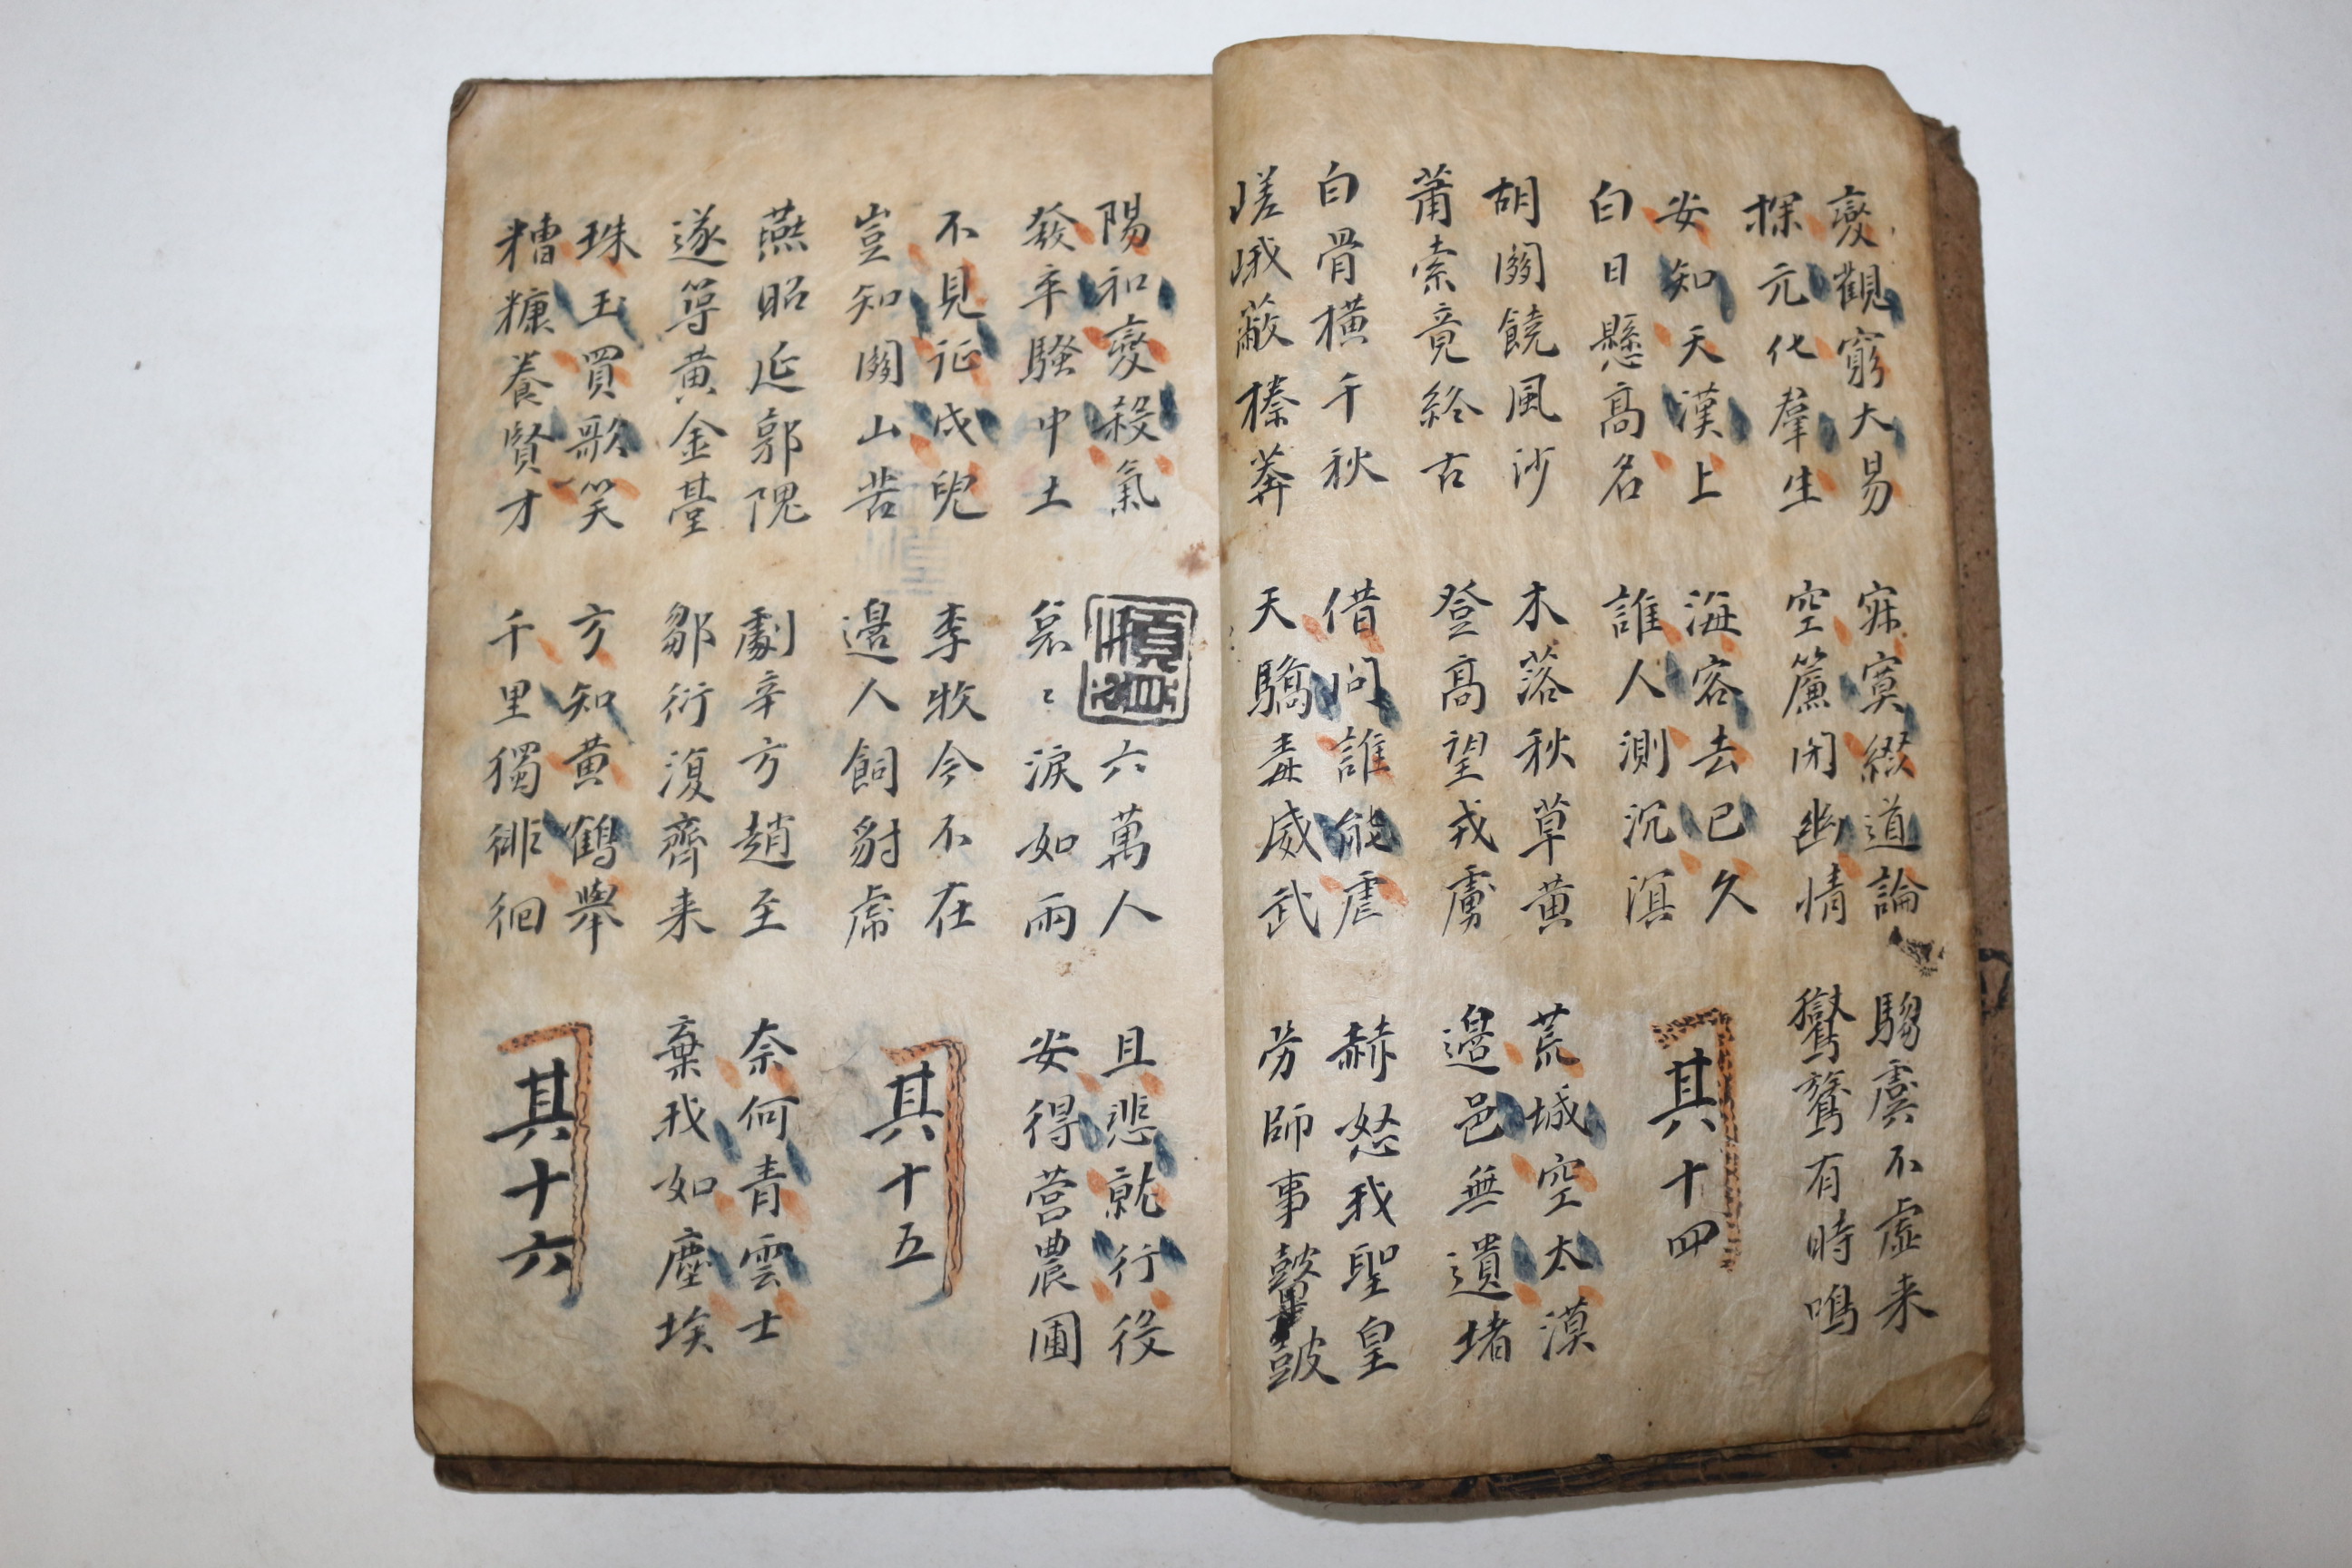 變觀窮大易
探元化羣生
寂寞綴道論
空簾閉幽情
騶虞不虛来
鸑鷟有時鳴
安知天漢上
白日懸高名
海客去已久
誰人測沉溟
其十四
胡關饒風沙
蕭索竟終古
木落秋草黃
登高望戎虜
荒城空太漠
邊邑無遺堵
白骨橫千秋
嵯峨蔽榛莽
借問誰能虐
天驕毒威武
赫怒我聖皇
勞師事鼙鼓
陽和變殺氣
發卒騷中土
六萬人
哀〻淚如雨
且悲就行役
安得营農圃
不見征戍兒
豈知關山苦
李牧今不在
邊人飼豺虎
其十五
燕昭延郭隗
遂築黃金臺
劇辛方趙至
鄒衍復齊来
奈何青雲士
棄我如塵埃
珠玉買歌笑
糟糠養賢才
方知黃鶴舉
千里獨徘徊
其十六